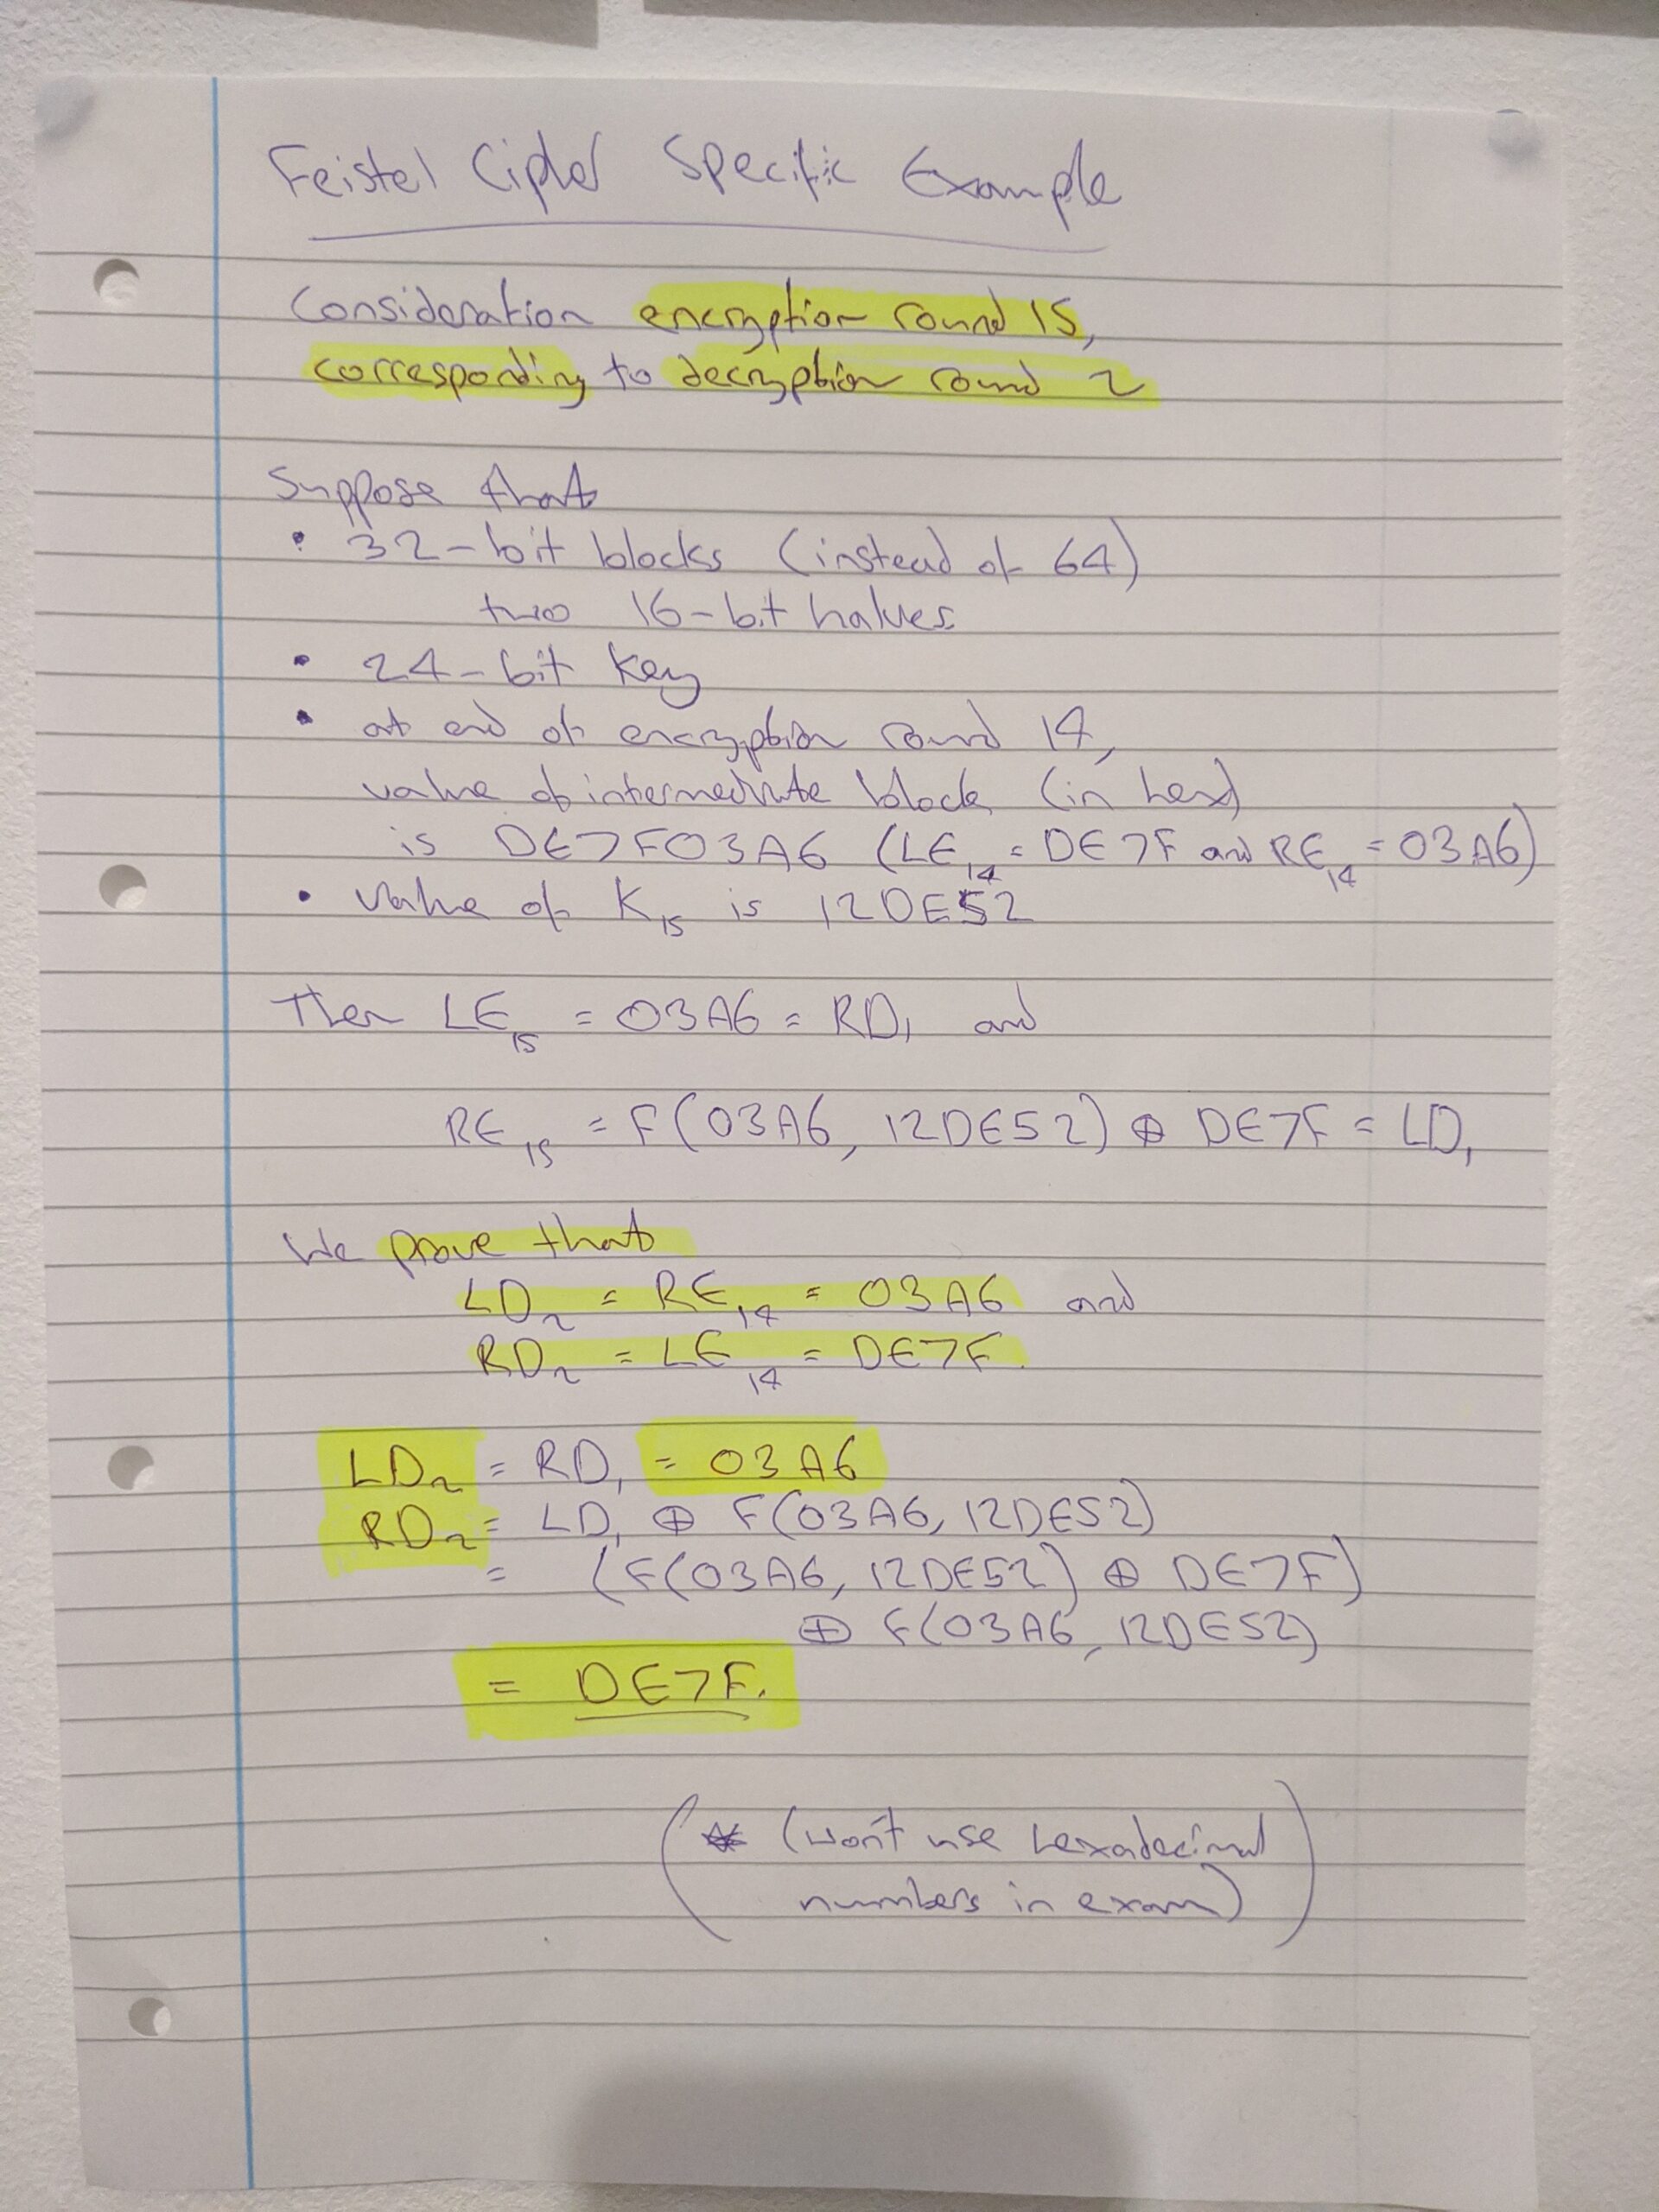 Feistel Cipher Specific Example
Consideration encryption round 15,
corresponding to decryption round 2
Suppose that
• 32-bit blocks (instead of 64)
two 16-bit halves.
• 24-bit key
• at end of encryption round 14,
value of intermediate block (in hex)
is DE7F03A6 (LE₁₄ = DE7F and RE₁₄ = 03A6)
• value of K₁₅ is 12DE52
Then LE₁₅ = 03A6 = RD₁ and
RE₁₅ = F(03A6, 12DE52) ⊕ DE7F = LD₁
We prove that
LD₂ = RE₁₄ = 03A6 and
RD₂ = LE₁₄ = DE7F.
LD₂ = RD₁ = 03A6
RD₂ = LD₁ ⊕ F(03A6, 12DE52)
= (F(03A6, 12DE52) ⊕ DE7F)
⊕ F(03A6, 12DE52)
= DE7F.
(* (won't use hexadecimal
numbers in exam))